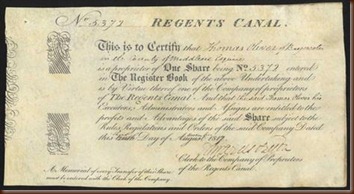 No. 5379 REGENTS CANAL.
This is to Certify that Thomas
in the County of Middlesex Esquire
is a proprietor of One Share being No. 5379 entered
in The Register Book of the above Undertaking and
is by Virtue thereof one of the Company of proprietors
of The Regents Canal And that the said
Executors Administrators and Assigns are entitled to the
profits and Advantages of the said Share subject to the
Rules Regulations and Orders of the said Company Dated
this day of August
Clerk to the Company of Proprietors
An Memorial of every Transfer of this Share of the Regents Canal.
must be entered with the Clerk of the Company.